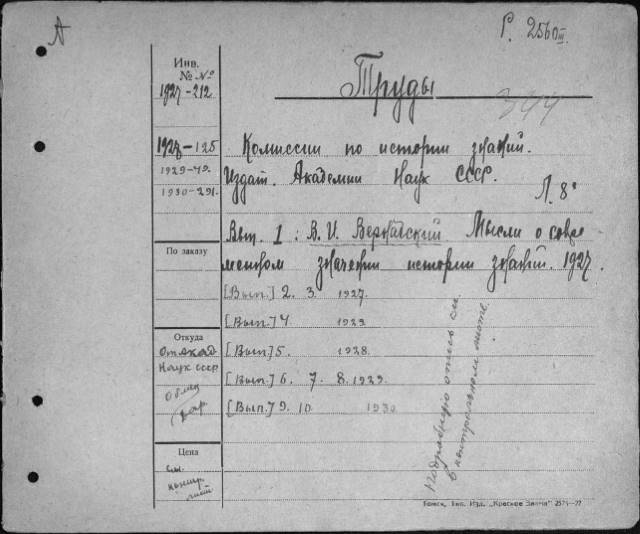 А
Р. 2560 III.
Инв.
№ №
1927-212
Труды
344
1927-125
1929-49.
1930-291.
Комиссии по истории знаний.
Издат. Академии Наук СССР.
Л. 8°
Вып. 1 : В. И. Вернадский Мысли о совре
менном значении истории знаний. 1927.
По заказу
[Вып.] 2. 3. 1927.
[Вып.] 4 1929
[Вып.] 5. 1928.
[Вып.] 6. 7. 8. 1929.
[Вып.] 9. 10 1930
Откуда
От Акад
Наук СССР
Обмен
Цена
См.
контр.
лист
Подробную опись см.
в контрольном листе.
Томск, Тип. Изд. „Красное Знамя" 2571—27